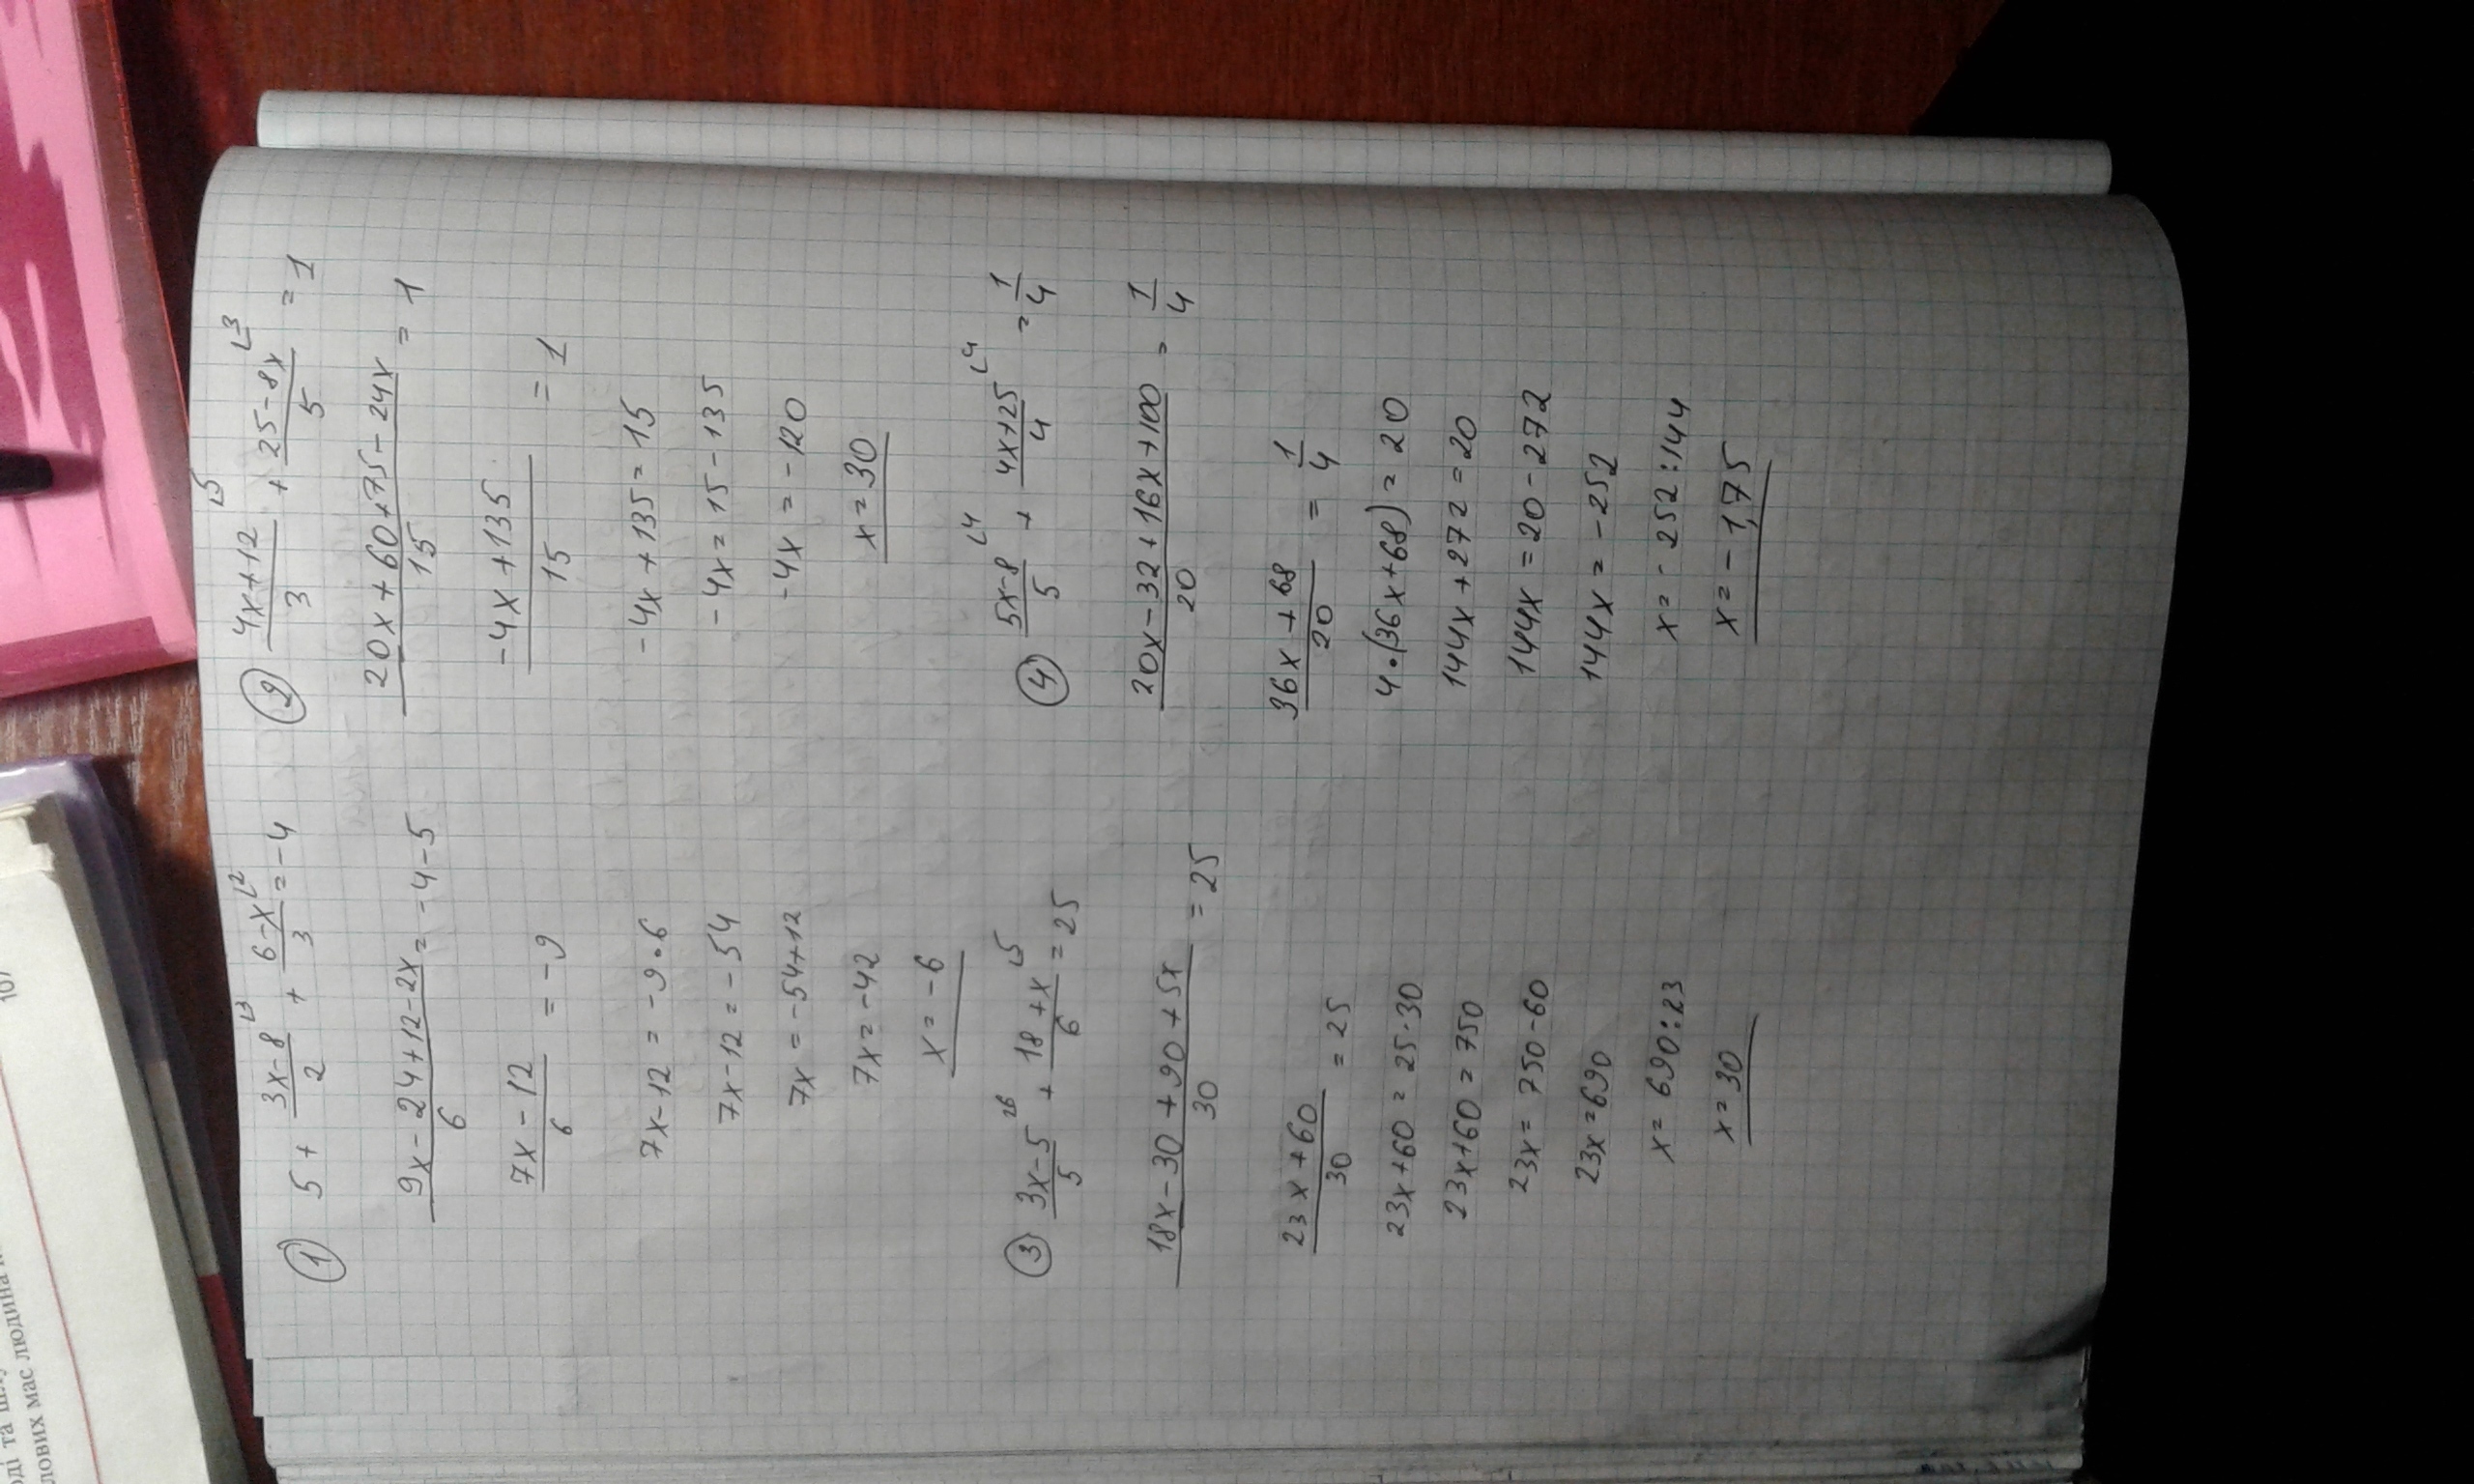 ① 5 + (3x-8)/2 ∟3 + (6-x)/3 ∟2 = -4
(9x-24+12-2x)/6 = -4-5
(7x-12)/6 = -9
7x-12 = -9·6
7x-12 = -54
7x = -54+12
7x = -42
x = -6
② (4x+12)/3 ∟5 + (25-8x)/5 ∟3 = 1
(20x+60+75-24x)/15 = 1
(-4x+135)/15 = 1
-4x+135 = 15
-4x = 15-135
-4x = -120
x = 30
③ (3x-5)/5 ∟6 + (18+x)/6 ∟5 = 25
(18x-30+90+5x)/30 = 25
(23x+60)/30 = 25
23x+60 = 25·30
23x+60 = 750
23x = 750-60
23x = 690
x = 690:23
x = 30
④ (5x-8)/5 ∟4 + (4x+25)/4 ∟4 = 1/4
(20x-32+16x+100)/20 = 1/4
(36x+68)/20 = 1/4
4·(36x+68) = 20
144x+272 = 20
144x = 20-272
144x = -252
x = -252:144
x = -1,75
107
ових мас людина